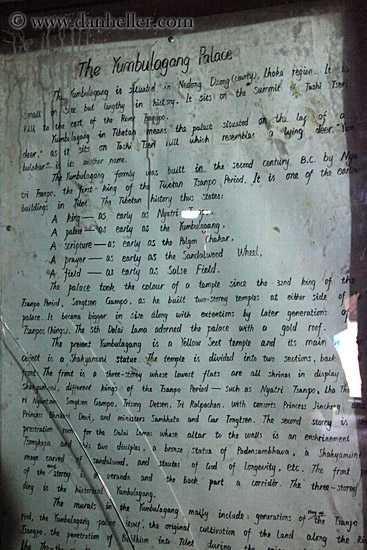 © www.danheller.com
The Yumbulagang Palace
The Yumbulagang is situated in Nedong Dzong (county), Lhoka region. It is
small in size but lengthy in history. It sits on the summit of Tashi Tseri
Hill to the east of the River
Yumbulagang in Tibetan means the palace situated on the leg of a
dear," as it sits on Tashi Tseri Hill which resembles a lying deer. "Yum
bulakar" is its another name.
The Yumbulagang formly was built in the second century B.C. by Nya
tri Tsanpo, the first king of the Tibetan Tsanpo Period. It is one of the earlie
buildings in Tibet. The Tibetan history thus states:
A king — as early as Nyatri
A palace — as early as the Yumbulagang.
A scripture — as early as the Palgon Chakar.
A prayer — as early as the Sandalwood Wheel.
A field — as early as Salse Field.
The palace took the colour of a temple since the 32nd king of the
Tsanpo Period, Songtsen Gampo, as he built two-storey temples at either side of
palace. It became bigger in size along with extentions by later generations of
Tsanpos (kings). The 5th Dalai lama adorned the palace with a gold roof.
The present Yumbulagang is a Yellow Sect temple and its main
object is a Shakyamuni statue. The temple is divided into two sections, back
front. The front is a three-storey whose lowest flats are all shrines in display
Shakyamuni, different kings of the Tsanpo Period — such as Nyatri Tsanpo, Lha Tho
ri Nyantsen, Songtsen Gampo, Trisong Detsen, Tri Ralpachan, with consorts Princess Jincheng, and
Princess Bhrikuti Devi, and ministers Sambhota and Gar Tongtsen. The second storey is
prostration roof for the Dalai Lamas whose altar to the walls is an enshrinement
Tsongkapa and his two disciples, a bronze status of Padmsambhava, a Shakyamuni
mage carved of sandalwood, and statues of God of Longevity, etc. The front
of the storey is a veranda and the back part a corridor. The three-storey
ding is the historical Yumbulagang.
The murals in the Yumbulagang maily include: generations of the Tsanpo
riod, the Yumbulagang palace itself, the original cultivation of the land along the
Tsangpo, the penetration of Buddhism into Tibet during the